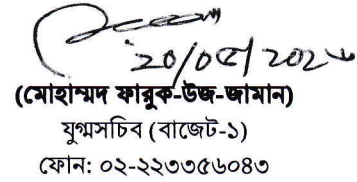 ২০/০৫/২০২
(মোহাম্মদ ফারুক-উজ-জামান)
যুগ্মসচিব (বাজেট-১)
ফোন: ০২-২২৩৩৫৬০৪৩